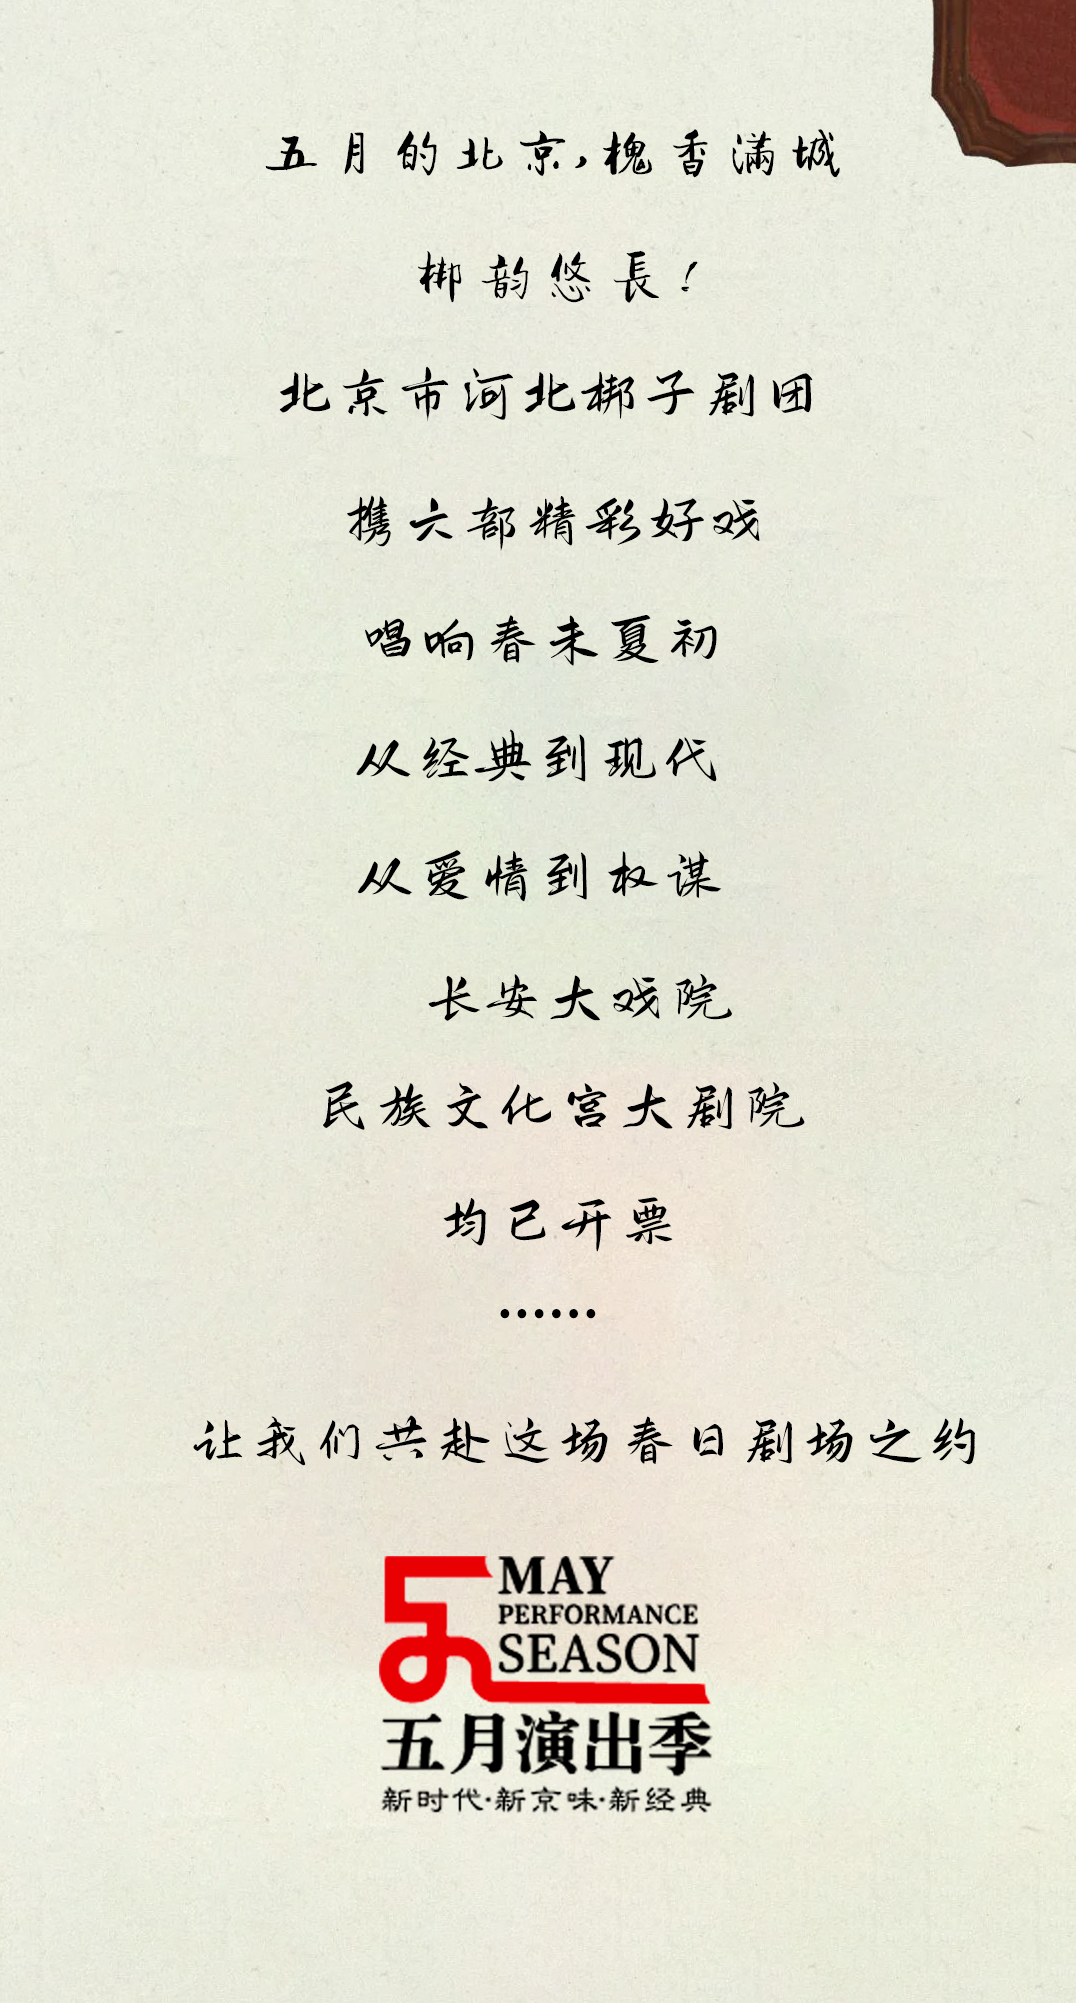 五月的北京,槐香满城
梆韵悠長!
北京市河北梆子剧团
携六部精彩好戏
唱响春末夏初
从经典到现代
从爱情到权谋
长安大戏院
民族文化宫大剧院
均已开票
······
让我们共赴这场春日剧场之约
MAY
PERFORMANCE
SEASON
五月演出季
新时代·新京味·新经典